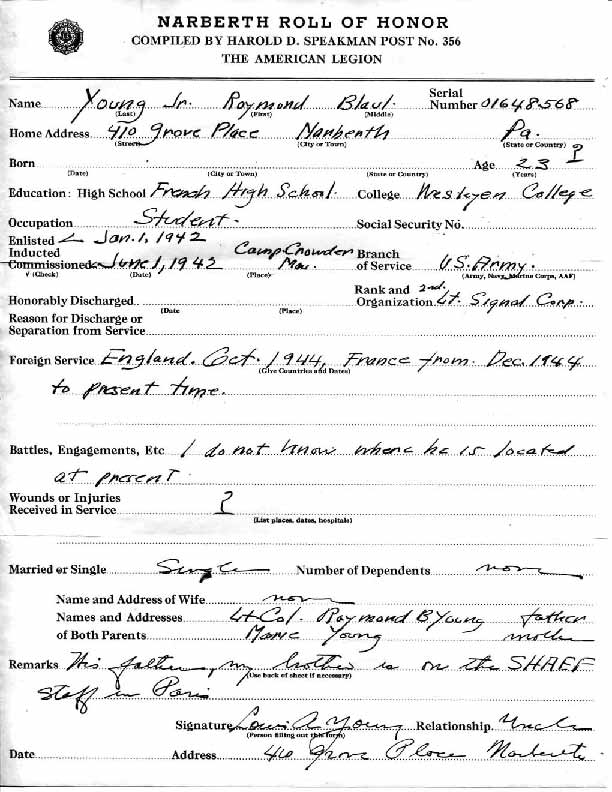 NARBERTH ROLL OF HONOR
COMPILED BY HAROLD D. SPEAKMAN POST No. 356
THE AMERICAN LEGION
Name Young Jr. Raymond Blaul. Serial Number 01648568
(Last) (First) (Middle)
Home Address 410 Grove Place Narberth Pa.
(Street) (City or Town) (State or Country)
Born Age 23 ?
(Date) (City or Town) (State or Country) (Years)
Education: High School French High School. College Wesleyen College
Occupation Student. Social Security No.
Enlisted Jan. 1, 1942
Inducted Camp Crowder Branch
Commissioned June 1, 1942 Mo. of Service U.S. Army.
√ (Check) (Date) (Place) (Army, Navy, Marine Corps, AAF)
Honorably Discharged Rank and Organization 2nd. Lt. Signal Corp.
(Date (Place)
Reason for Discharge or
Separation from Service
Foreign Service England. Oct. 1944, France from Dec. 1944
(Give Countries and Dates)
to present time.
Battles, Engagements, Etc I do not know where he is located
at present
Wounds or Injuries
Received in Service ?
(List places, dates, hospitals)
Married or Single Single Number of Dependents non
Name and Address of Wife non
Names and Addresses Lt Col. Raymond B Young father
of Both Parents Marie Young mother
Remarks His father, my brother is on the SHAEF
(Use back of sheet if necessary)
Staff in Paris
Signature Louis A Young Relationship Uncle
(Person filling out this form)
Date Address 410 Grove Place Narberth